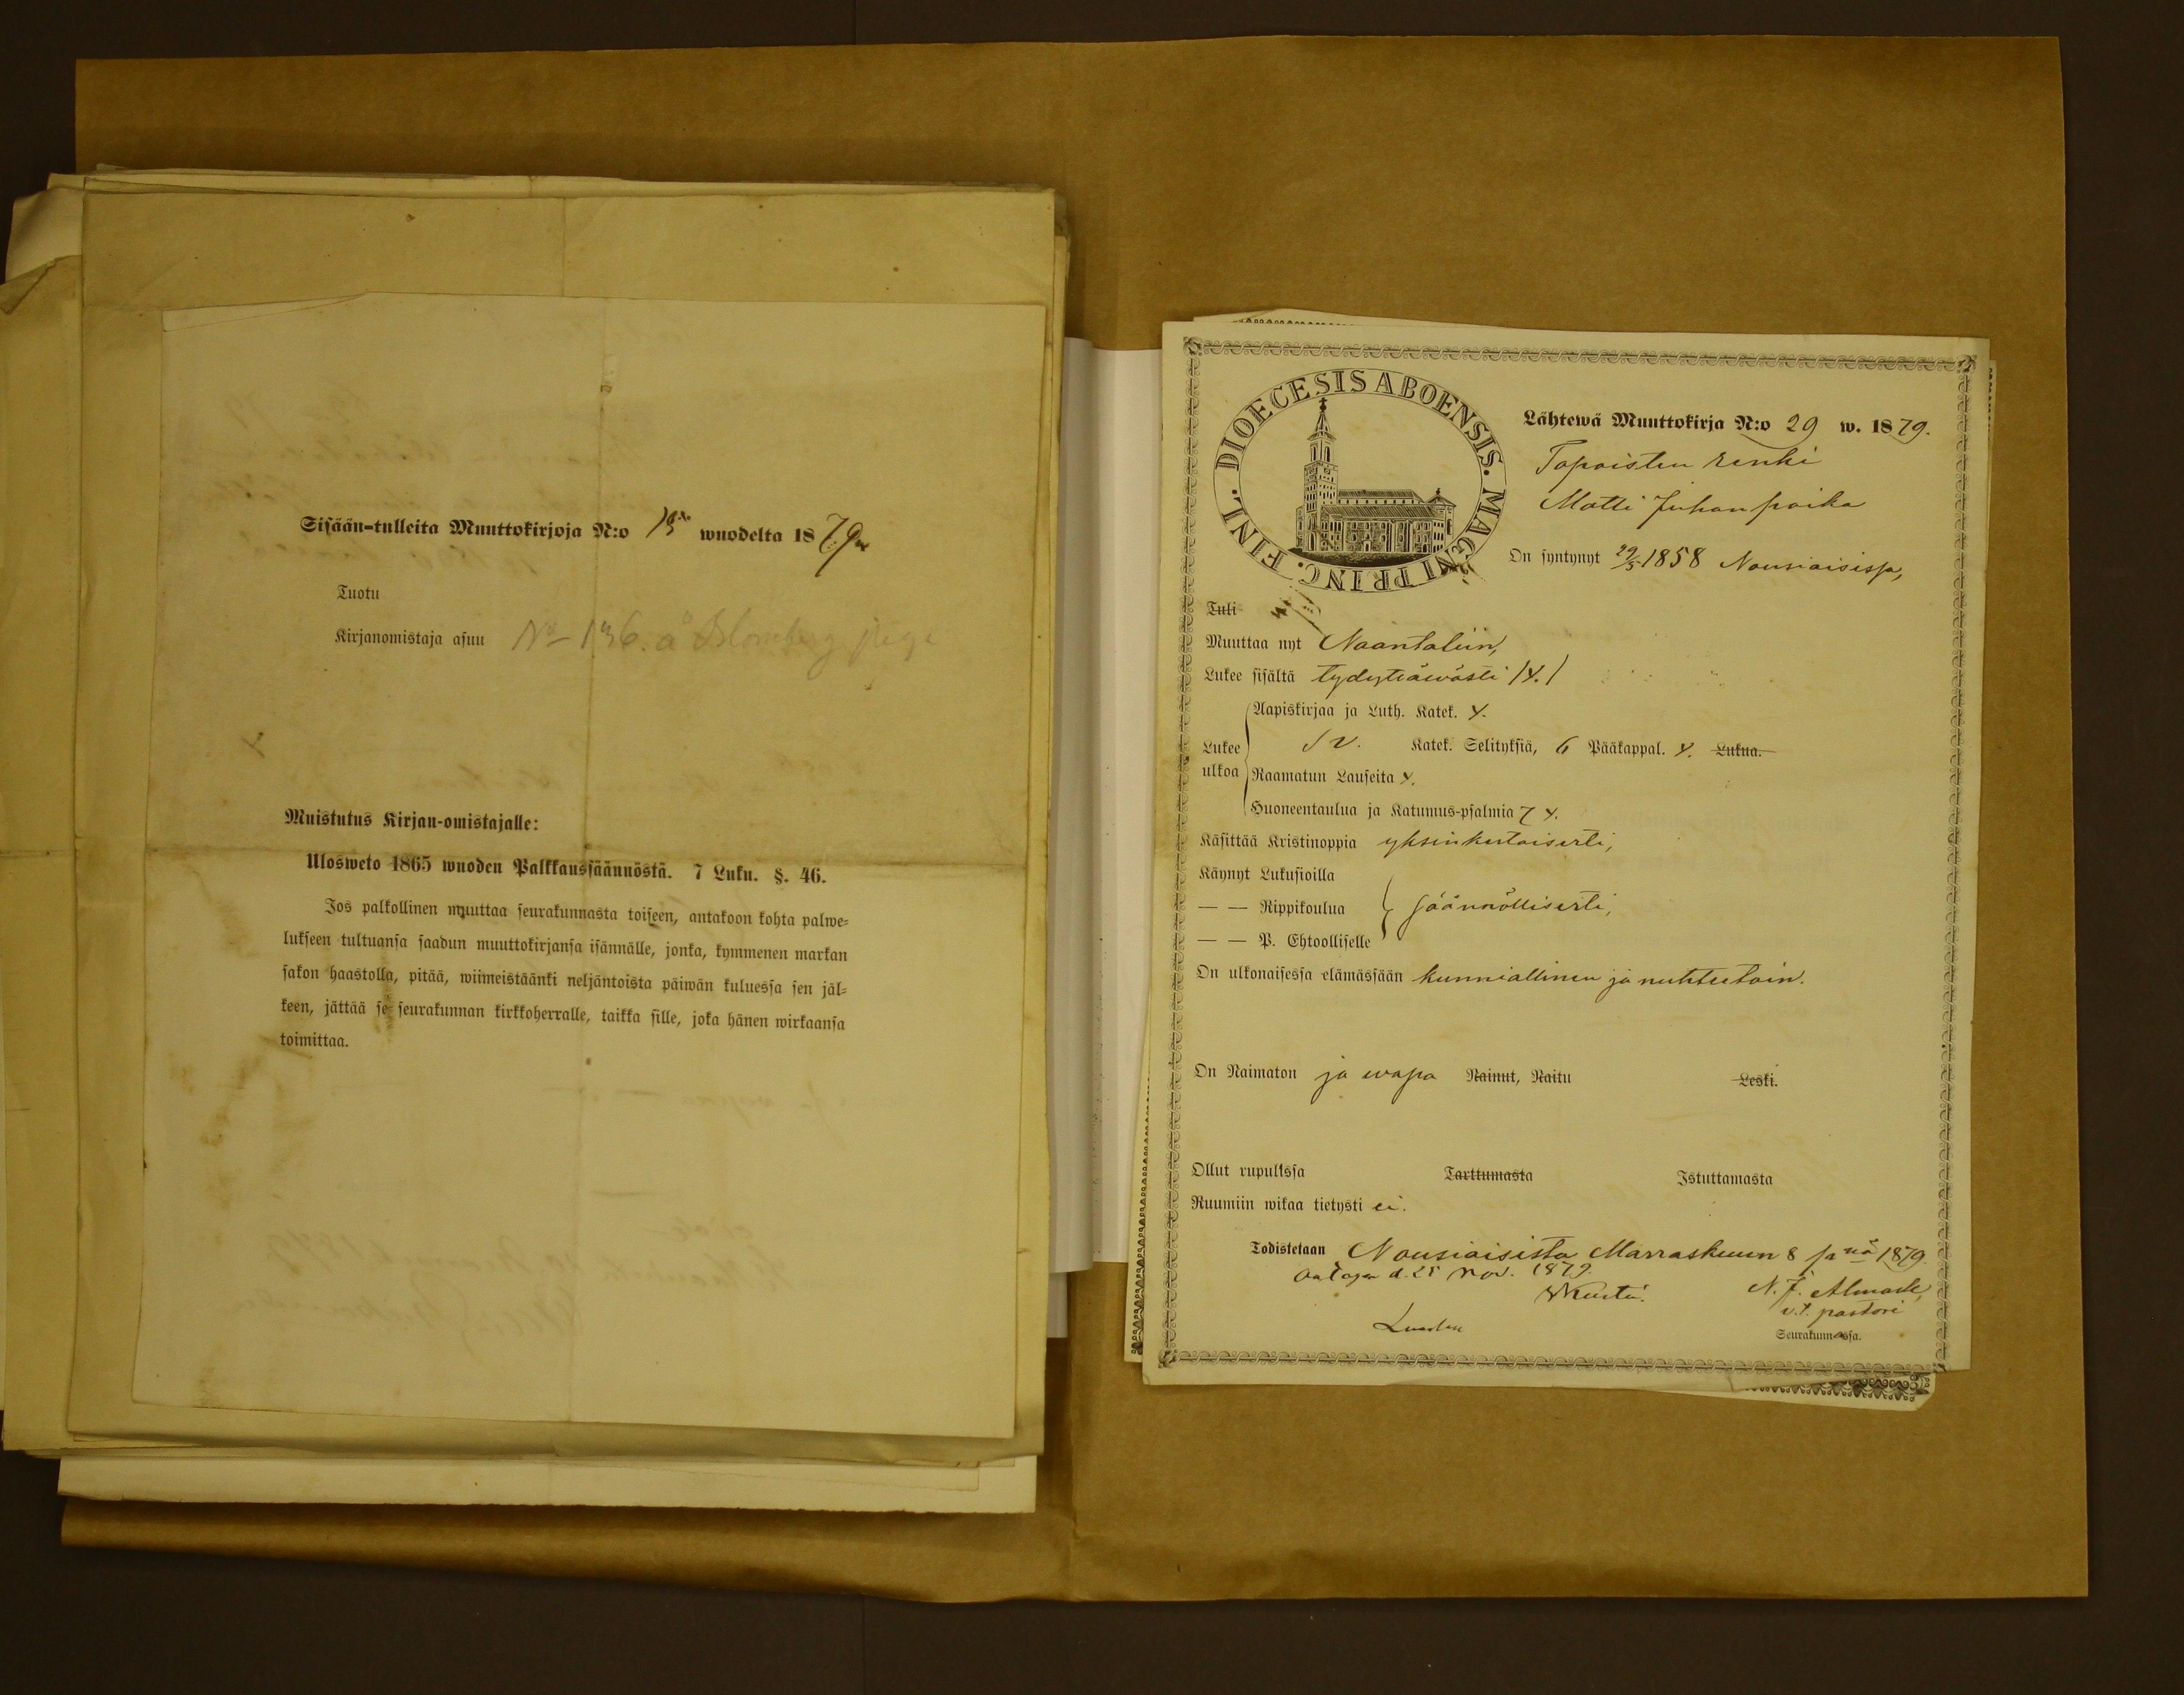 Sisään-tulleita Muuttokirjoja N:o 15 wuodelta 1879
Tuotu
Kirjanomistaja asuu No 136. å Blomberg
Muistutus Kirjan-omistajalle:
Ulosweto 1865 wuoden Palkkaussäännöstä. 7 Luku. §. 46.
Jos palkollinen muuttaa seurakunnasta toiseen, antakoon kohta palwe-
lukseen tultuansa saadun muuttokirjansa isännälle, jonka, kymmenen markan
sakon haastolla, pitää, wiimeistäänki neljäntoista päiwän kuluessa sen jäl-
keen, jättää se seurakunnan kirkkoherralle, taikka sille, joka hänen wirkaansa
toimittaa.
DIOECESIS ABOENSIS. MAGNI PRINC. FINL.
Lähtewä Muuttokirja N:o 29 w. 1879.
Topoisten renki
Matti Juhanpoika
On syntynyt 29/5 1858 Nousiaisissa,
Tuli
Muuttaa nyt Naantaliin,
Lukee sisältä tydyttäwästi /X./
Aapiskirjaa ja Luth. Katek. X.
Lukee ulkoa
S V. Katek. Selityksiä, 6 Pääkappal. X. Lukua.
Raamatun Lauseita X.
Huoneentaulua ja Katumus-psalmia 7 X.
Käsittää Kristinoppia yksinkertaisesti,
Käynyt Lukusioilla
— — Rippikoulua säännöllisesti,
— — P. Ehtoolliselle
On ulkonaisessa elämässään kunniallinen ja nuhteetoin.
On Naimaton ja wapa Nainut, Naitu Leski.
Ollut rupulissa Tarttumasta Istuttamasta
Ruumiin wikaa tietysti ei.
Todistetaan Nousiaisista Marraskuun 8 p nä 1879.
Antagen d. 25 Nov. 1879.
N. J. Almark,
v.t. pastori
Seurakunnassa.